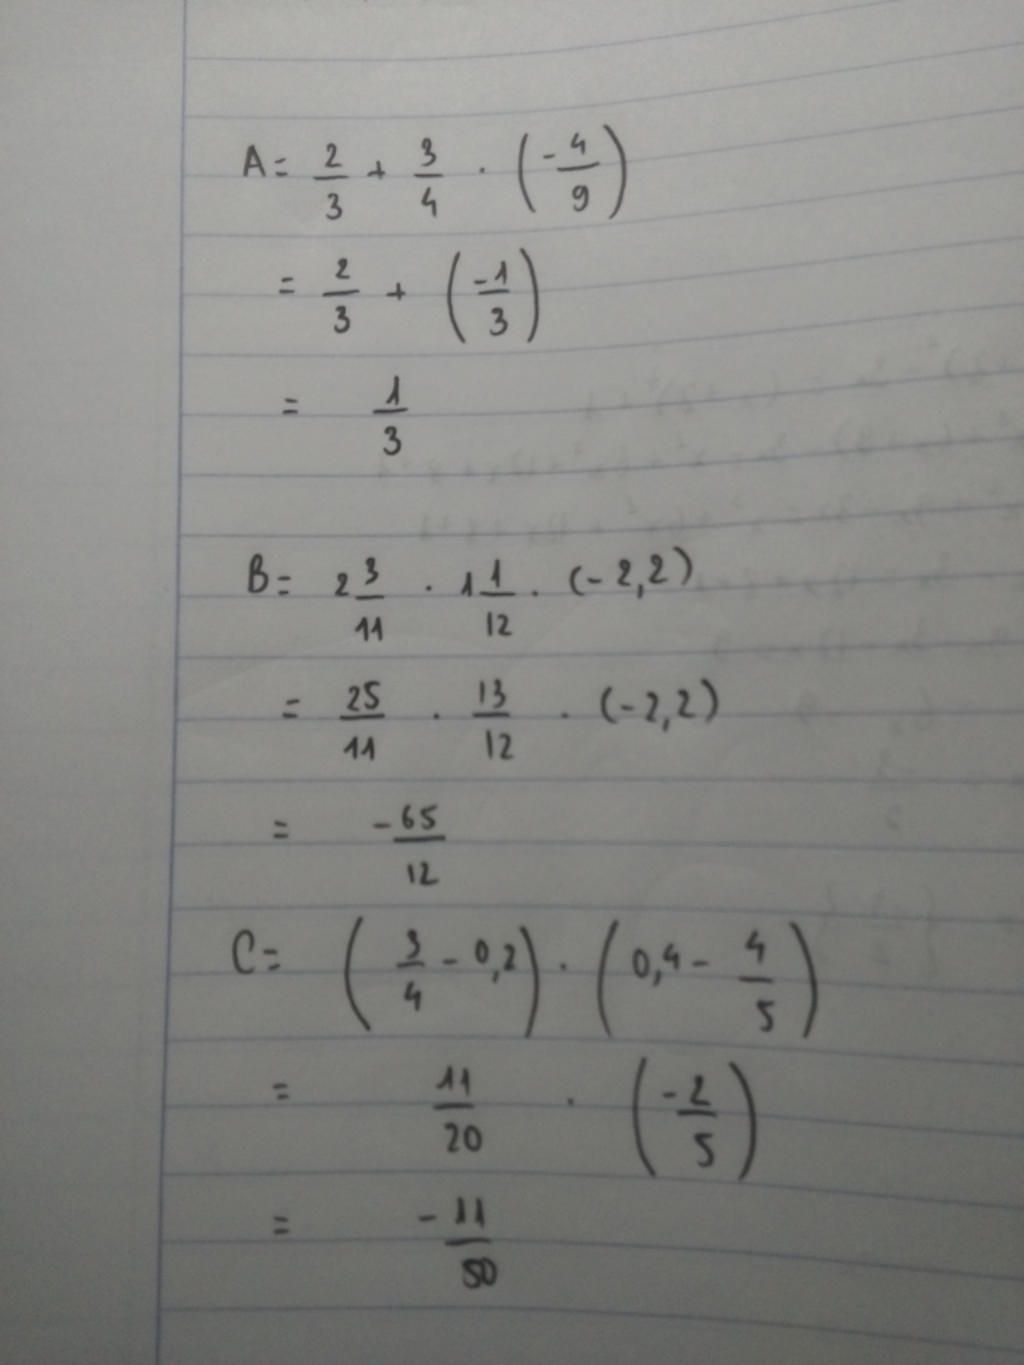 A = 2/3 + 3/4 . (-4/9)
= 2/3 + (-1/3)
= 1/3
B = 2 3/11 . 1 1/12 . (-2,2)
= 25/11 . 13/12 . (-2,2)
= -65/12
C = (3/4 - 0,2) . (0,4 - 4/5)
= 11/20 . (-2/5)
= -11/50